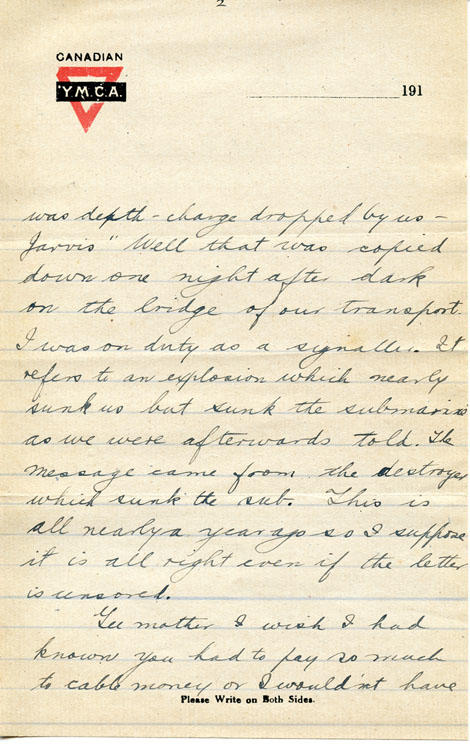 2
CANADIAN
Y.M.C.A.
191
was depth-charge dropped by us -
Jarvis" Well that was copied
down one night after dark
on the bridge of our transport.
I was on duty as a signaller. It
refers to an explosion which nearly
sunk us but sunk the submarine
as we were afterwards told. The
message came from the destroyer
which sunk the sub. This is
all nearly a year ago so I suppose
it is all right even if the letter
is unsored.
Gee mother I wish I had
known you had to pay so much
to cable money or I wouldn't have
Please Write on Both Sides.